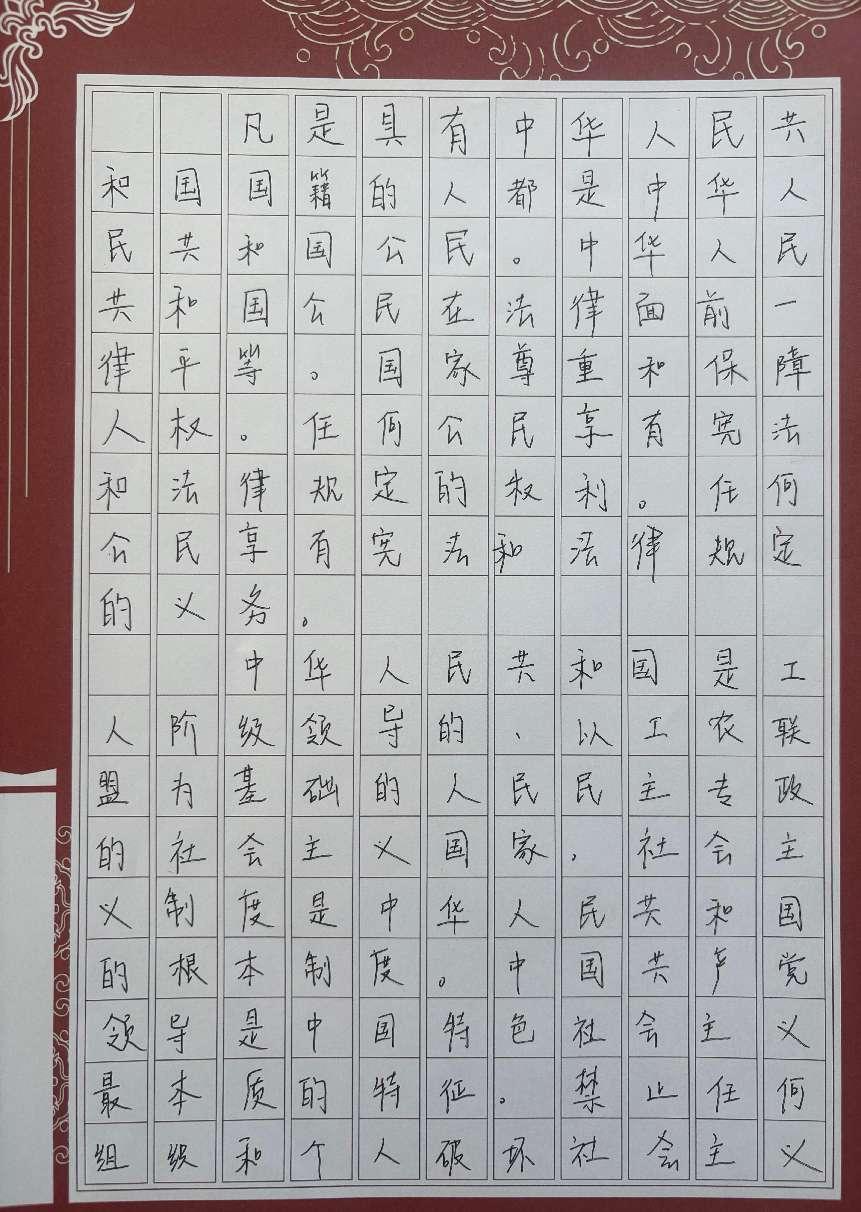 凡是具有中华人民共
和国国籍的人都是中华人
民共和国公民。中华人民
共和国公民在法律面前一
律平等。国家尊重和保障
人权。任何公民享有宪法
和法律规定的权利。任何
公民享有宪法和法律规定
的义务。
中华人民共和国是工
人阶级领导的、以工农联
盟为基础的人民民主专政
的社会主义国家，社会主
义制度是中华人民共和国
的根本制度。中国共产党
领导是中国特色社会主义
最本质的特征。禁止任何
组织和个人破坏社会主义